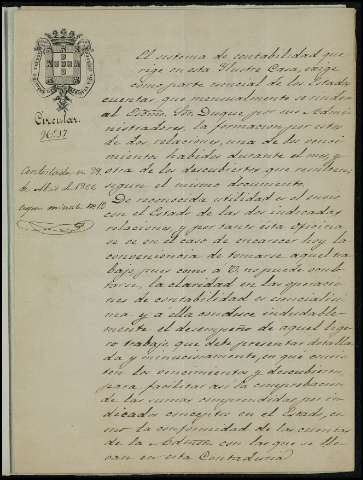 Circular.
Nº 17
Contestada en 29
de Abril de 1866
El sistema de contabilidad que
rige en esta Ilustre Casa, exige
como parte esencial de los Estados
cuentas que mensualmente se rinden
al Excmo. Sor. Duque por sus Admi-
nistradores, la formacion por estos
de dos relaciones, una de los venci-
mientos habidos durante el mes, y
otra de los descubiertos que resulten
segun el mismo documento.
De reconocida utilidad es el envio
con el Estado de las dos indicadas
relaciones y por tanto esta oficina
no se en el caso de encarecer hoy la
conveniencia de tomarse aquel tra-
bajo, pues como a V. no puede ocul-
tarse, la claridad en las operacio-
nes de contabilidad es esencialisi-
ma y a ella conduce indudable-
mente el desempeño de aquel lige-
ro trabajo, que debe presentar detalla-
da y minuciosamente, en qué consis-
ten los vencimientos y descubiertos,
para facilitar asi la comprobacion
de las sumas comprendidas por in-
dicados conceptos en el Estado, co-
mo la conformidad de las cuentas
de la Admon con las que se lle-
van en esta Contaduria